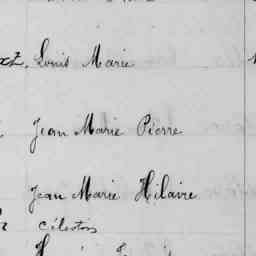 Louis Marie
Jean Marie Pierre
Jean Marie Hilaire
Célestin